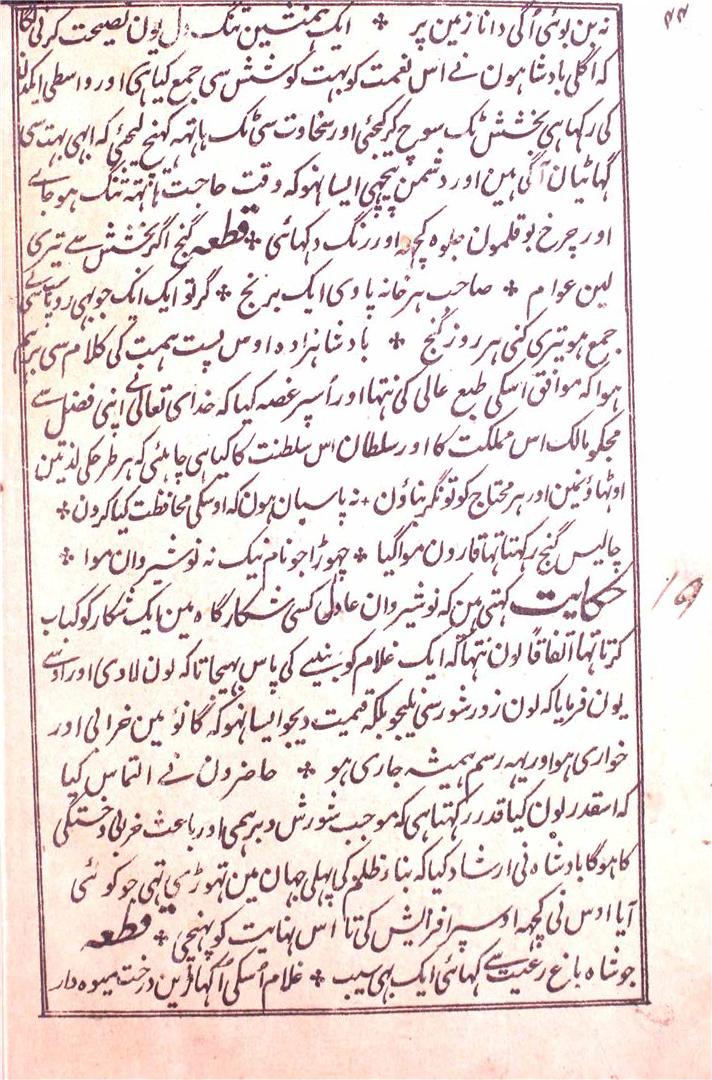 ۴۴
نہ بن بوئی اُگی دانا زمین پر ٭ ایک ہمنشین تنگ دل یون نصیحت کرنی لگا
کہ اگلی بادشاہون نے اس نعمت کو بہت کوشش سی جمع کیا ہی اور واسطی ایکدن
کی رکہا ہی بخشش تک سوچ کر کیجئی اور سخاوت سی ٹک ہاتہہ کہنچ لیجئی کہ ابہی بہت سی
گہاٹیان آگی ہین اور دشمن پیچہی ایسا نہو کہ وقت حاجت ہاتہہ تنگ ہوجاے
اور چرخ بوقلمون جلوہ کچہہ اور رنگ دکہائی ٭ قطعہ گنج اگر بخشش سے تیری
لین عوام ٭ صاحب ہر خانہ پاوی ایک برنج ٭ گر تو ایک ایک جو بہی روپا سب سی لے
جمع ہو تیری کنی ہر روز گنج ٭ بادشاہزادہ اوس پست ہمت کی کلام سی برہم
ہوا کہ موافق اسکی طبع عالی کی نتہا اور اُسپر غصہ کیا کہ خدای تعالیٰ نے اپنی فضل سے
مجکو مالک اس مملکت کا اور سلطان اس سلطنت کا کیا ہی چاہئی کہ ہر طرحکی لذتین
اوٹہاؤنمین اور ہر محتاج کو تونگر بناؤن ٭ نہ پاسبان ہون کہ اوسکی محافظت کیا کرون ٭
چالیس گنج رکہتا تہا قارون موا گیا ٭ چہوڑا جو نام نیک نہ نوشیروان موا ٭
حکایت کہتی ہین کہ نوشیروان عادل کسی شکارگاہ مین ایک شکار کو کباب
کرتا تہا اتفاقاً لون نتہا کہ ایک غلام کو بنیے کی پاس بہیجا تا کہ لون لادی اور اوسے
یون فرمایا کہ لون زور شور سی نلیجو بلکہ قیمت دیجو ایسا نہو کہ گانوُ مین خرابی اور
خواری ہو اور یہہ رسم ہمیشہ جاری ہو ٭ حاضرون نے التماس کیا
کہ اسقدر لون کیا قدر رکہتا ہی کہ موجب شورش و برہمی اور باعث خرابی و خستگی
کا ہوگا بادشاہ نی ارشاد کیا کہ بناء ظلم کی پہلی جہان مین تہوڑی تہی جو کوئی
آیا اوس نی کچہہ اوسپر افزایش کی تا اس نہایت کو پہنچی ٭ قطعہ
جو شاہ باغ رعیت سے کہائی ایک بہی سیب ٭ غلام اُسکی اُکہاڑین درخت میوہ دار